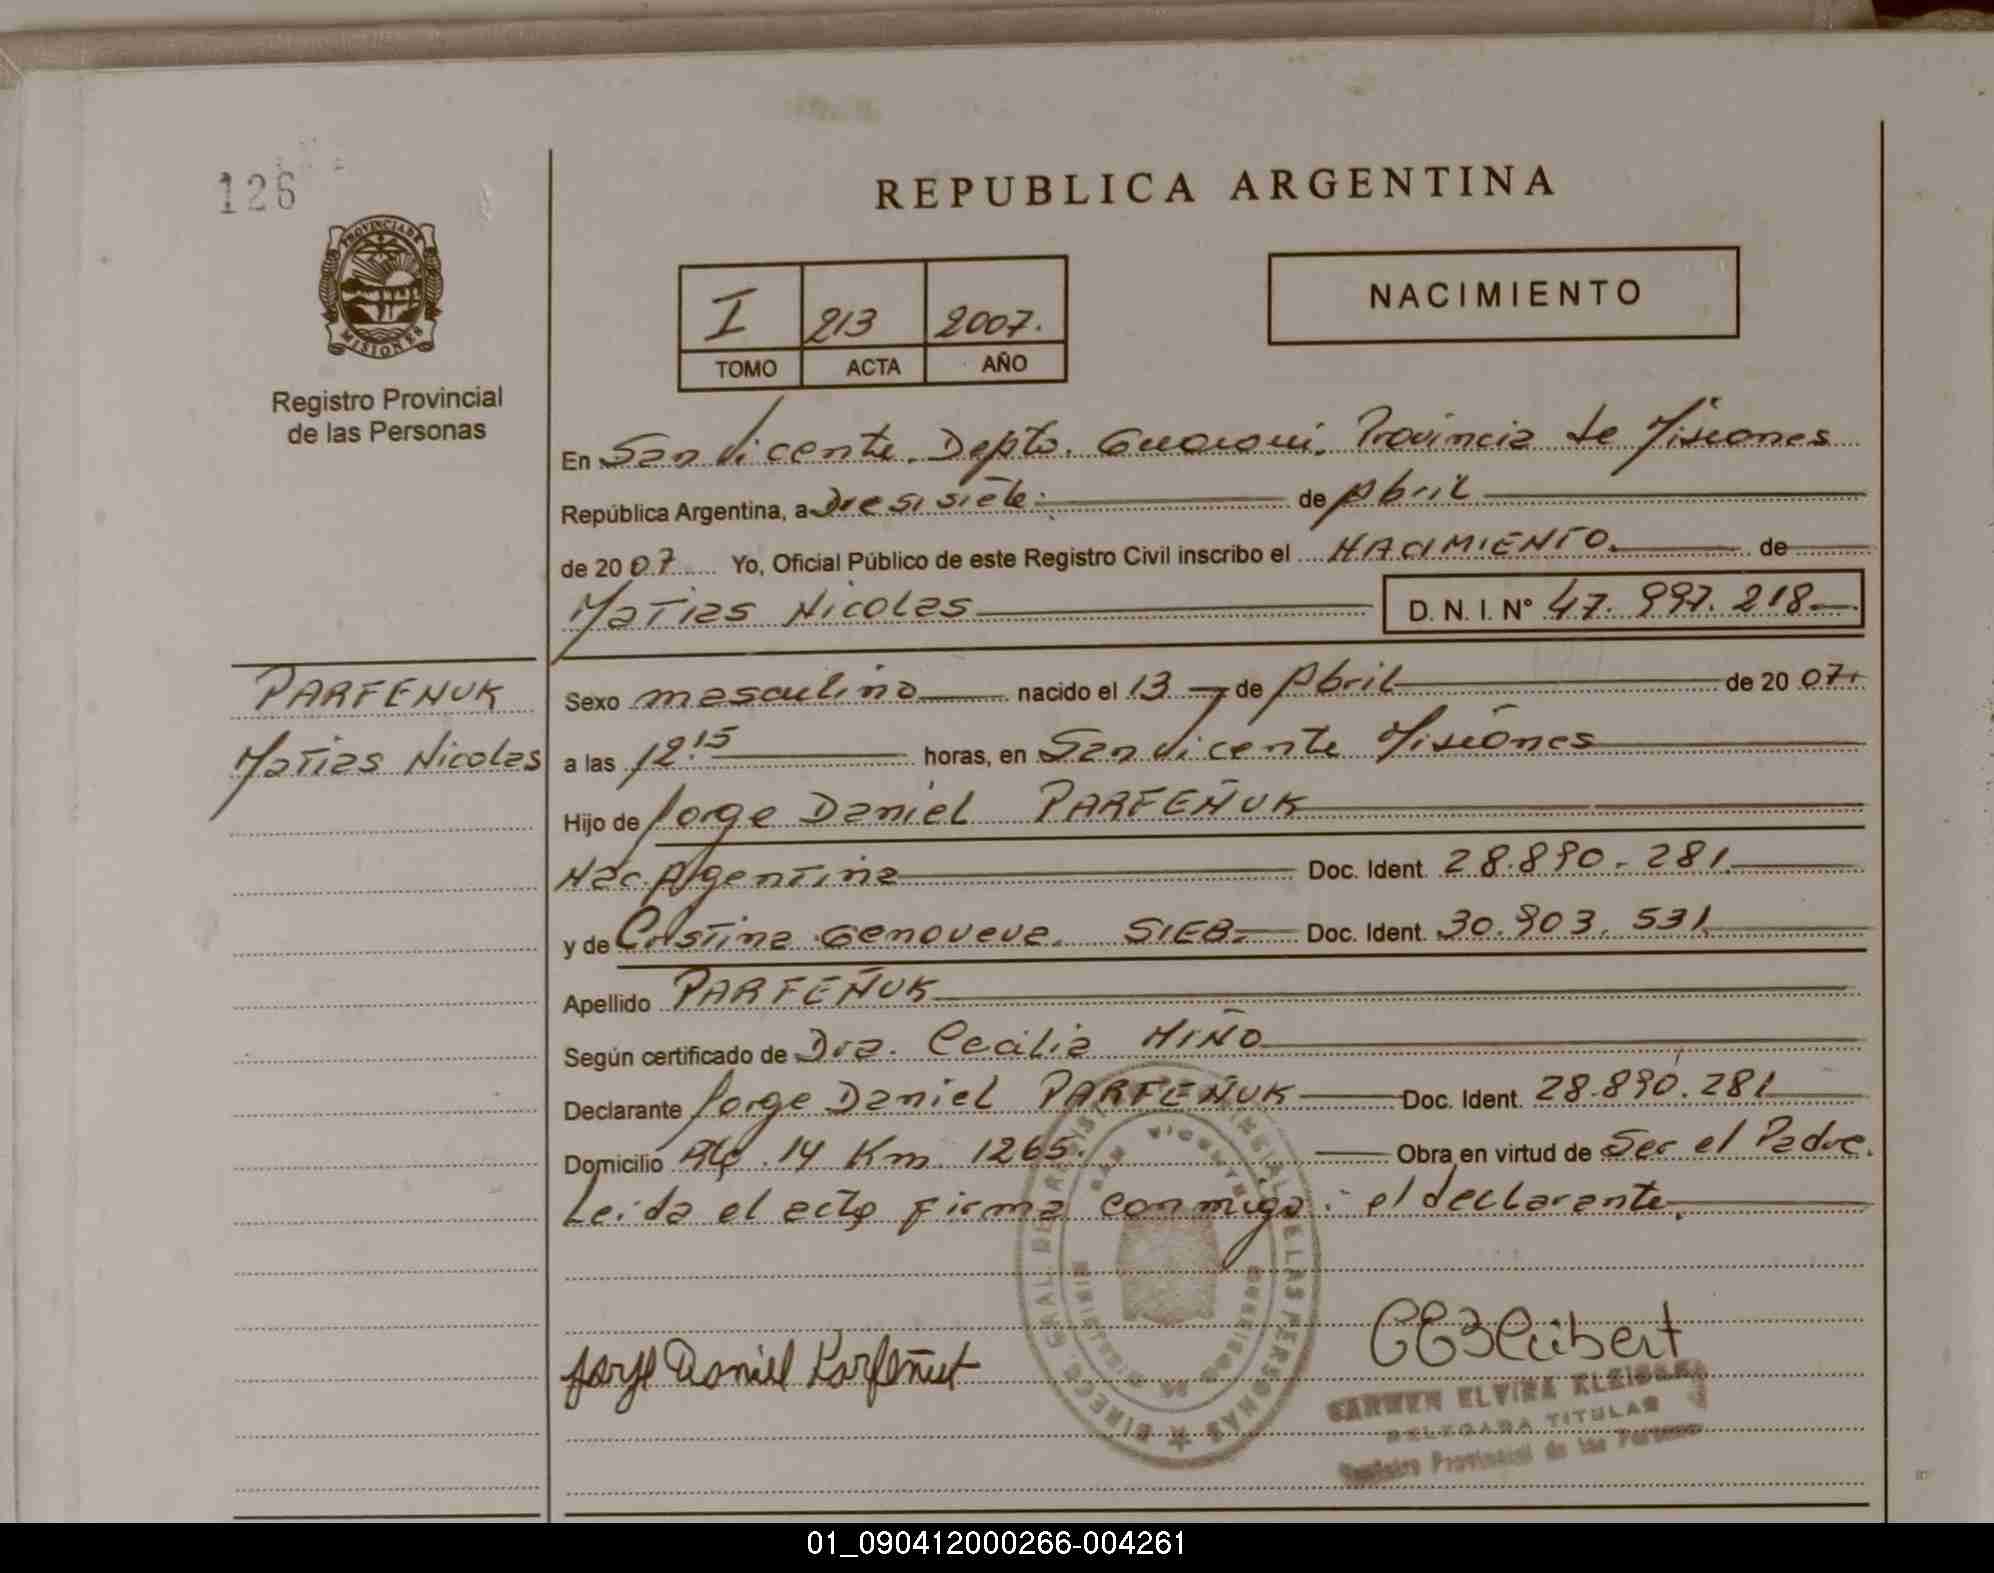 126
PROVINCIA DE
MISIONES
Registro Provincial
de las Personas
REPUBLICA ARGENTINA
I 213 2007.
TOMO ACTA AÑO
NACIMIENTO
En San Vicente. Depto. Guarani. Provincia de Misiones
República Argentina, a Diesisiete: de Abril
de 2007 Yo, Oficial Público de este Registro Civil inscribo el NACIMIENTO. de
Matias Nicolas D. N. I. N° 47. 997. 218.
PARFENUK
Matias Nicolas
Sexo masculino nacido el 13 de Abril de 2007.
a las 12.15 horas, en San Vicente Misiones
Hijo de Jorge Daniel PARFEÑUK
Nac. Argentina Doc. Ident. 28.890.281.
y de Cristina Genoveva. SIEB. Doc. Ident. 30.903.531
Apellido PARFEÑUK
Según certificado de Dra. Cecilia MIÑO
Declarante Jorge Daniel PARFEÑUK Doc. Ident. 28.890.281
Domicilio Rta. 14 Km 1265. Obra en virtud de Ser el Padre.
Leida el acta firma conmigo: el declarante.
Jorge Daniel Parfeñuk
SAN VICENTE
CARMEN ELVIRA
DELEGADA TITULAR
Registro Provincial de las Personas
01_090412000266-004261